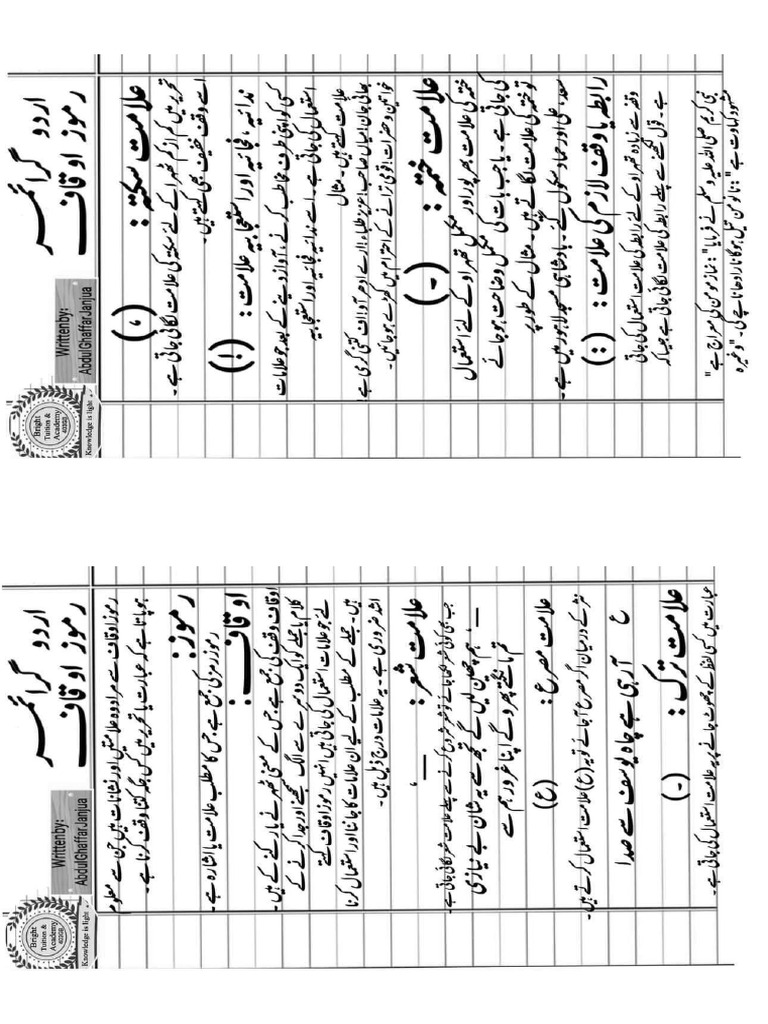 اردو گرائمر
رموز اوقاف
Writtenby:
AbdulGhaffarJanjua
Bright
Tuition &
Academy
Knowledge is light
رموز اوقاف سے مراد وہ علامتیں اور نشانات ہیں جن سے معلوم
ہو پاتا ہے کہ عبارت یا تحریر میں کس جگہ کتنا وقف کرنا ہے۔
رموز:
رموز رمز کی جمع ہے، جس کا مطلب علامت یا اشارہ ہے۔
اوقاف:
اوقاف وقف کی جمع ہے، جس کے معنی ٹھہرنے یا رکنے کے ہیں۔
کلام یا جملے کو ایک دوسرے سے الگ سمجھنے اور جدا کرنے کے
لئے جو علامات استعمال کی جاتی ہیں انہیں رموز اوقاف کہتے
ہیں۔ جملے کے مطلب کے لیے ان علامات کا جاننا اور استعمال کرنا
اشد ضروری ہے۔ یہ علامات درج ذیل ہیں۔
علامت شعر:
جب بھی کوئی شعر لکھا جائے تو شعر شروع کرنے سے پہلے علامت شعر لگائی جاتی ہے۔
ہم چھین لیں گے تجھ سے یہ شان بے نیازی
تم مانگتے پھرو گے اپنا غرور ہم سے
علامت مصرع: (ع)
نثر کے درمیان اگر مصرع آ جائے تو یہ (ع) علامت استعمال کرتے ہیں۔
ع آ رہی ہے چاہ یوسف سے صدا
علامت ترک: (۔)
عبارت میں کسی لفظ کے چھوٹ جانے پر یہ علامت استعمال کی جاتی ہے۔
اردو گرائمر
رموز اوقاف
Writtenby:
AbdulGhaffarJanjua
Bright
Tuition &
Academy
Knowledge is light
علامت سکتہ: (،)
تحریر میں کم از کم ٹھہراؤ کے لئے سکتہ کی علامت لگائی جاتی ہے۔
اسے وقف خفیف بھی کہتے ہیں۔
ندائیہ، فجائیہ اور استعجابیہ علامت: (!)
کسی کو اپنی طرف مخاطب کرنے، آواز دینے کے بعد جو علامات
استعمال کی جاتی ہے۔ اسے ندائیہ فجائیہ اور استعجابیہ
علامت کہتے ہیں۔ مثال
بھائی جان! میاں صاحب! عزیز طلباء! ارے ادھر آو! اف کتنی گرمی ہے!
خواتین و حضرات! قومی ترانے کے احترام میں کھڑے ہو جائیں۔
علامت ختمہ: (۔)
ختمہ کی علامت بھر پور اور مکمل ٹھہراو کے لئے استعمال
کی جاتی ہے۔ یا جب بات کی مکمل وضاحت ہو جائے
تو ختمہ کی علامت لگاتے ہیں۔ مثال کے طور پر
سعد، علی اور حماد سکول گئے۔ بادشاہی مسجد لاہور میں ہے۔
رابطہ یا وقف لازم کی علامت: (:)
وقفہ سے زیادہ ٹھہراو کے لئے رابطہ کی علامت استعمال کی جاتی
ہے۔ قول لکھنے سے پہلے رابطہ کی علامت لگائی جاتی ہے جیسا کہ
نبی کریم صلی اللہ علیہ وسلم نے فرمایا: "نماز مومن کی معراج ہے"
مشہور کہاوت ہے: "نا نو من تیل ہوگا نا رادھا ناچے گی۔" وغیرہ